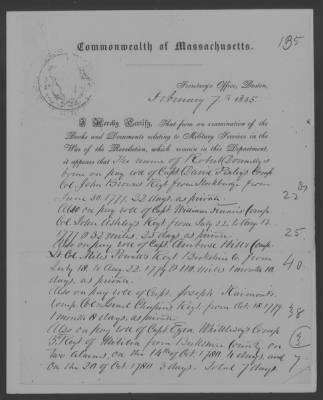 135
Commonwealth of Massachusetts.
Secretary's Office, Boston,
February 7th 1855
I Hereby Certify, That from an examination of the
Books and Documents relating to Military Services in the
War of the Revolution, which remain in this Department,
it appears that The name of Robert Donnelly is
borne on pay roll of Capt. David Comp.
Col. John Browns Regt from Stockbridge from
June 30. 1777. 22 days. as private. 22
Also on pay roll of Capt William Comp.
Col. John Ashleys Regt from July 22. to Aug 13
1777 & 32 miles. 25 days, as private. 25
Also on pay roll of Capt. Ambrose Hills Comp.
Lt Col. Miles Powells Regt Berkshire Co. from
July 18. to Aug. 22. 1779 & 110 miles 1 month 10 40
days, as private.
Also on pay roll of Capt. Joseph
Comp. Col. Israel Chapins Regt from Oct. 18. 1779.
1 month 8 days. as private. 38
Also on pay roll of Capt Ezra Whittleseys Comp
5th Regt of Militia from Berkshire County on 3
Two alarms, on the 14th of Oct. 1780. 4 days, and
on the 20 of Oct. 1780 3 days. Total 7 days. 7